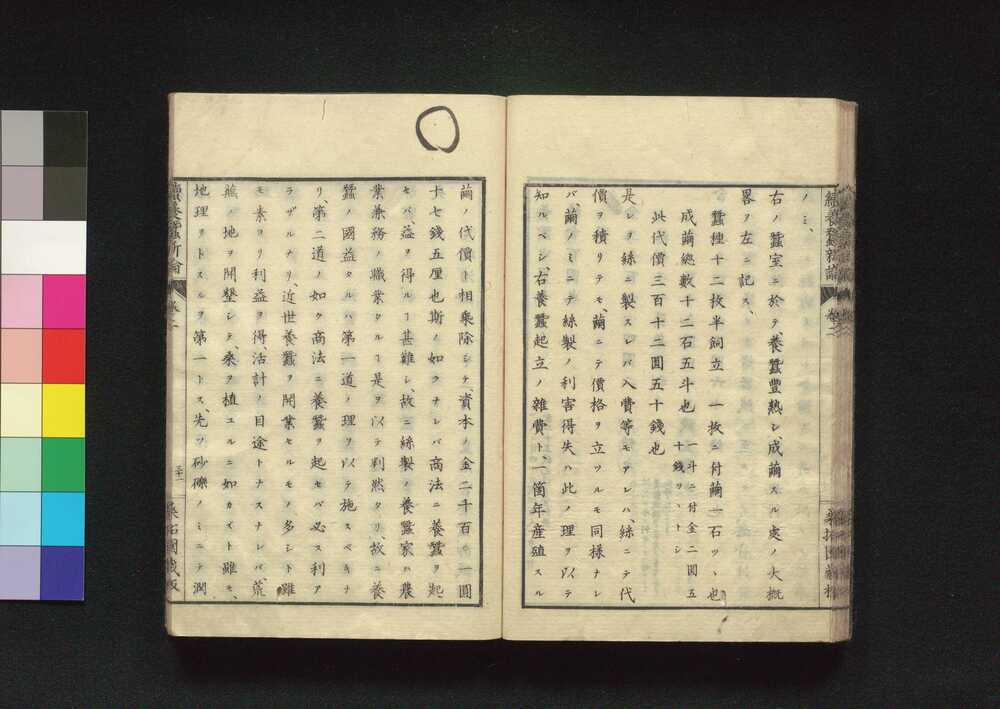 ノミ、
右ノ蠶室ニ於テ養蠶豐熟シ、成繭スル處ノ大概
畧ヲ左ニ記ス、
蠶種十二枚半飼立 一枚ニ付繭一石ツヽ也
成繭總數十二石五斗也 一斗ニ付金二圓五
十錢リ、トシ
此代價三百十二圓五十錢也
是レヲ絲ニ製スレバ入費等モアレハ、絲ニテ代
價ヲ積リテモ、繭ニテ價格ヲ立ツルモ同様ナレ
バ、繭ノミニテ絲製ノ利害得失ハ此ノ理ヲ以テ
知ルベシ、右養蠶起立ノ雜費ト、一箇年産殖スル
繭ノ代價ト相乘除シテ、資本ノ金二千百
一圓
十七錢五厘也斯ノ如ラナレバ商法ニ養蠶ヲ起
セバ、益ヲ得ルヿ甚難シ、故ニ絲製ノ養蠶家ハ農
業兼務ノ職業タルヿ是ヲ以テ判然タリ、故ニ養
蠶ノ國益タルハ第一道ノ理ヲ以テ施スベキナ
リ、第二道ノ如ク商法ニ養蠶ヲ起セバ必ス利ア
ラザルナリ、近世養蠶ヲ開業セルモノ多シト雖
モ素ヨリ利益ヲ得、活計ノ目途トナスナレバ、荒
蕪ノ地ヲ開墾シテ、桑ヲ植ユルニ如カズト雖モ、
地理ヲトスルヲ第一トス、先ツ砂礫ノミニテ潤
續養蠶新論
卷二